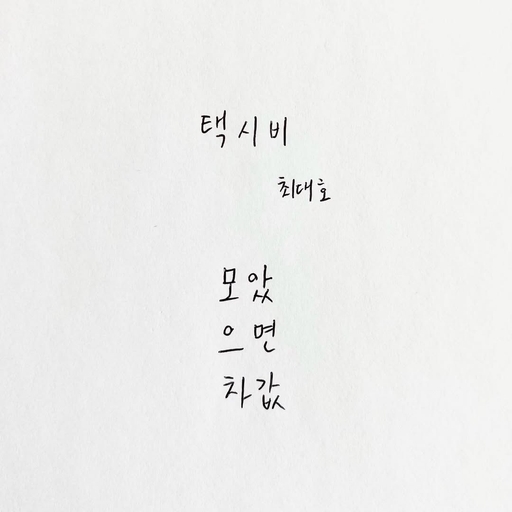 택시비
최대호
모았
으면
차값